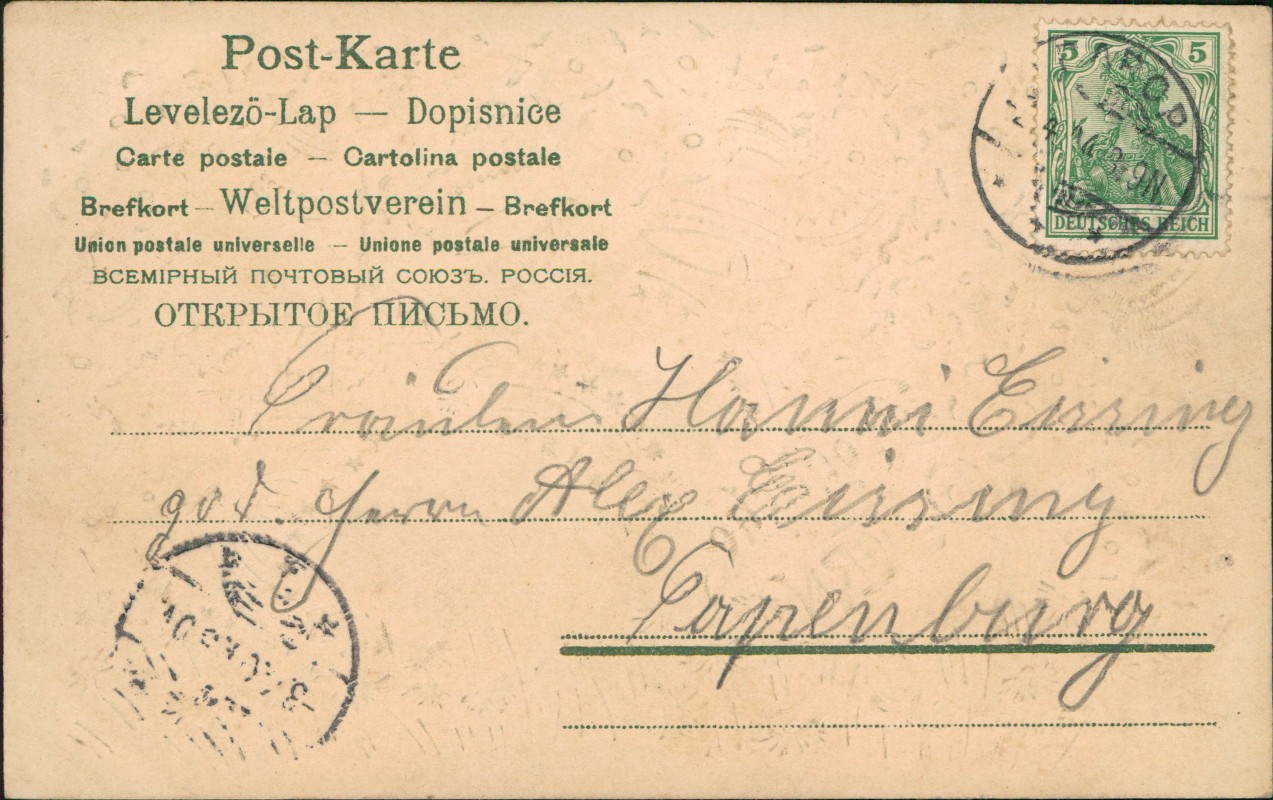 Post-Karte
Levelezö-Lap — Dopisnice
Carte postale — Cartolina postale
Brefkort — Weltpostverein — Brefkort
Union postale universelle — Unione postale universale
ВСЕМІРНЫЙ ПОЧТОВЫЙ СОЮЗЪ. РОССІЯ.
ОТКРЫТОЕ ПИСЬМО.
5 5
DEUTSCHES REICH
Fräulein Hanni
Herrn Alex
Papenburg